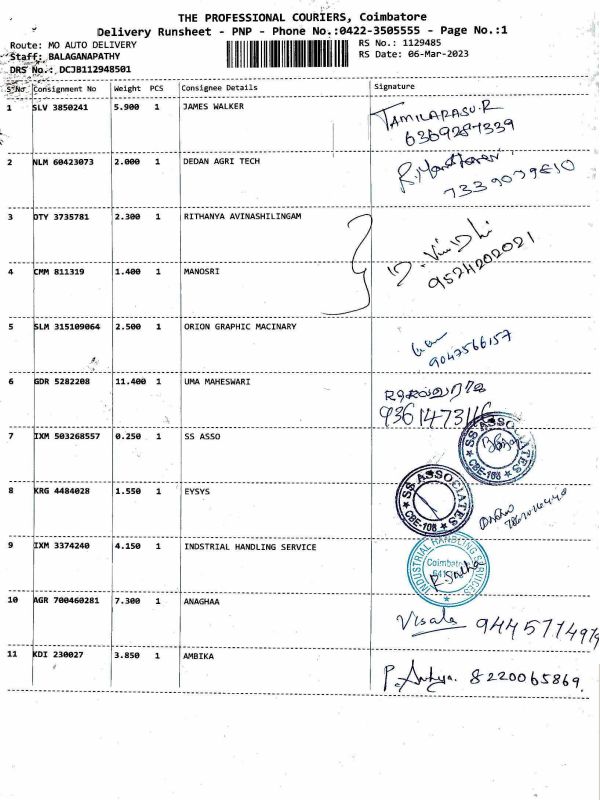 THE PROFESSIONAL COURIERS, Coimbatore
Delivery Runsheet - PNP - Phone No.:0422-3505555 - Page No.:1
Route: MO AUTO DELIVERY
RS No.: 1129485
Staff: BALAGANAPATHY
RS Date: 06-Mar-2023
DRS No.: DCJB112948501
S.No Consignment No Weight PCS Consignee Details Signature
1 SLV 3850241 5.900 1 JAMES WALKER TAMILARASU.R
6369287339
2 NLM 60423073 2.000 1 DEDAN AGRI TECH
3 OTY 3735781 2.300 1 RITHANYA AVINASHILINGAM
D. VinDhi
9524202021
4 CMM 811319 1.400 1 MANOSRI
5 SLM 315109064 2.500 1 ORION GRAPHIC MACINARY
9047566157
6 GDR 5282208 11.400 1 UMA MAHESWARI
7 IXM 503268557 0.250 1 SS ASSO
SS ASSOCIATES
CBE-108
8 KRG 4484028 1.550 1 EYSYS
SS ASSOCIATES
CBE-108
9 IXM 3374240 4.150 1 INDSTRIAL HANDLING SERVICE
INDUSTRIAL HANDLING SERVICES
Coimbatore
10 AGR 700460281 7.300 1 ANAGHAA Visala
11 KDI 230027 3.850 1 AMBIKA 8220065869.